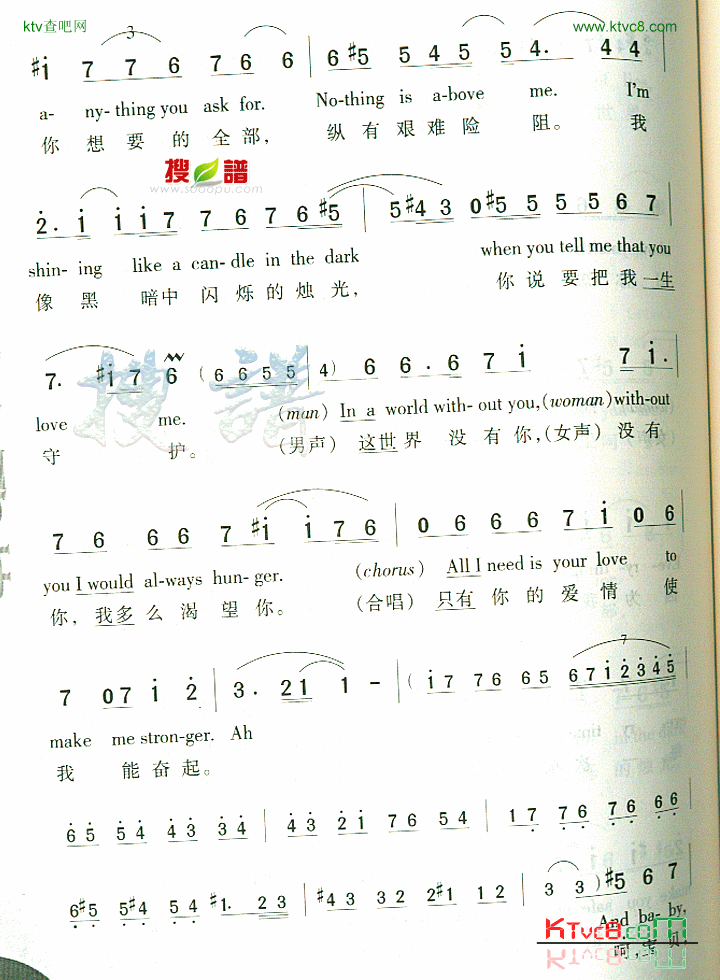 ktv查吧网 www.ktvc8.com
3
#i 7 7 6 7 6 6 | 6 #5 5 4 5 5 5 4. 4 4
a- ny- thing you ask for. No-thing is a-bove me. I'm
你 想 要 的 全 部, 纵 有 艰 难 险 阻。 我
搜 譜
www.sooopu.com
2. i i i 7 7 6 7 6 #5 | 5 #4 3 0 #5 5 5 5 6 7
shin- ing like a can- dle in the dark when you tell me that you
像 黑 暗中 闪 烁 的 烛 光, 你 说 要 把 我 一生
7. #i 7 6 ( 6 6 5 5 | 4) 6 6 . 6 7 i 7 i.
搜 譜
love me. (man) In a world with- out you, (woman) with-out
守 护。 (男声) 这世 界 没 有 你, (女声) 没 有
7 6 6 6 7 #i i 7 6 | 0 6 6 6 7 i 0 6
you I would al-ways hun- ger. (chorus) All I need is your love to
你, 我多 么 渴 望 你。 (合唱) 只有 你 的 爱 情 使
7
7 0 7 i 2 | 3 . 2 i 1 - | ( i 7 7 6 6 5 6 7 i 2 3 4 5
make me stron-ger. Ah
我 能 奋 起。
6 5 5 4 4 3 3 4 | 4 3 2 i 7 6 5 4 | 1 7 7 6 7 6 6 6
6 #5 5 #4 5 4 #2 #1. 2 3 | #4 3 3 2 2 #1 1 2 | 3 3 ) #5 6 7
And ba- by,
啊, 宝 贝,
KTvc8.com